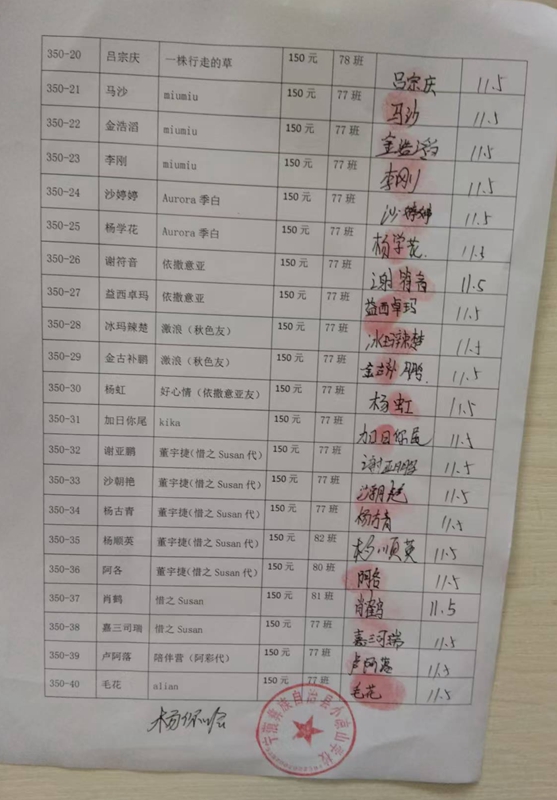 350-20 吕宗庆 一株行走的草 150元 78班 吕宗庆 11.5
350-21 马沙 miumiu 150元 77班 马沙 11.5
350-22 金浩滔 miumiu 150元 77班 金浩滔 11.5
350-23 李刚 miumiu 150元 77班 李刚 11.5
350-24 沙婷婷 Aurora季白 150元 77班 沙婷婷 11.5
350-25 杨学花 Aurora季白 150元 77班 杨学花. 11.5
350-26 谢符音 依撒意亚 150元 77班 谢符音 11.5
350-27 益西卓玛 依撒意亚 150元 77班 益西卓玛 11.5
350-28 冰玛辣楚 激浪（秋色友） 150元 77班 冰玛辣楚 11.5
350-29 金古补鹏 激浪（秋色友） 150元 77班 金古补鹏. 11.5
350-30 杨虹 好心情（依撒意亚友） 150元 77班 杨虹 11.5
350-31 加日你尾 kika 150元 77班 加日你尾 11.5
350-32 谢亚鹏 董宇捷(惜之Susan代) 150元 77班 谢亚鹏 11.5
350-33 沙朝艳 董宇捷(惜之Susan代) 150元 77班 沙朝艳 11.5
350-34 杨古青 董宇捷(惜之Susan代) 150元 77班 杨古青 11.5
350-35 杨顺英 董宇捷(惜之Susan代) 150元 82班 杨顺英 11.5
350-36 阿各 董宇捷(惜之Susan代) 150元 80班 阿各 11.5
350-37 肖鹤 惜之Susan 150元 81班 肖鹤 11.5
350-38 嘉三司瑞 惜之Susan 150元 77班 嘉三司瑞 11.5
350-39 卢阿落 陪伴营（阿彩代） 150元 77班 卢阿落 11.5
350-40 毛花 alian 150元 77班 毛花 11.5
宁蒗彝族自治县小凉山学校